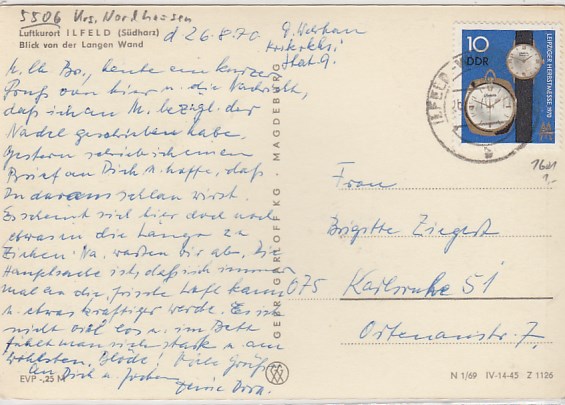 5506 Krs. Nordhausen
Luftkurort ILFELD (Südharz)
Blick von der Langen Wand
d 26.8.70
Stat. 9.
M. lb. Br., heute ein kurzer
Gruß von hier u. die Nachricht,
daß ich an M. bezügl. der
Nadel geschrieben habe.
Gestern schrieb ich einen
Brief an Dich u. hoffe, daß
Du daraus schlau wirst.
Es scheint sich hier doch noch
etwas in die Länge zu
ziehen. Na, warten wir ab. Die
Hauptsache ist, daß ich immer
mal an die frische Luft kann
u. etwas kräftiger werde. Es ist
nicht viel los u. im Bett
fühlt man sich stark u. am
wohlsten. Blöde! Viele Grüße
an Dich u. Jochen
Deine Dora.
EVP -,25 M
GEBR. GARLOFF KG. MAGDEBURG
10
DDR
LEIPZIGER HERBSTMESSE 1970
MM
ILFELD
1,-
Frau
Brigitte Ziegert
075 Karlsruhe 51
Ostenaustr. 7.
N 1/69 IV-14-45 Z 1126